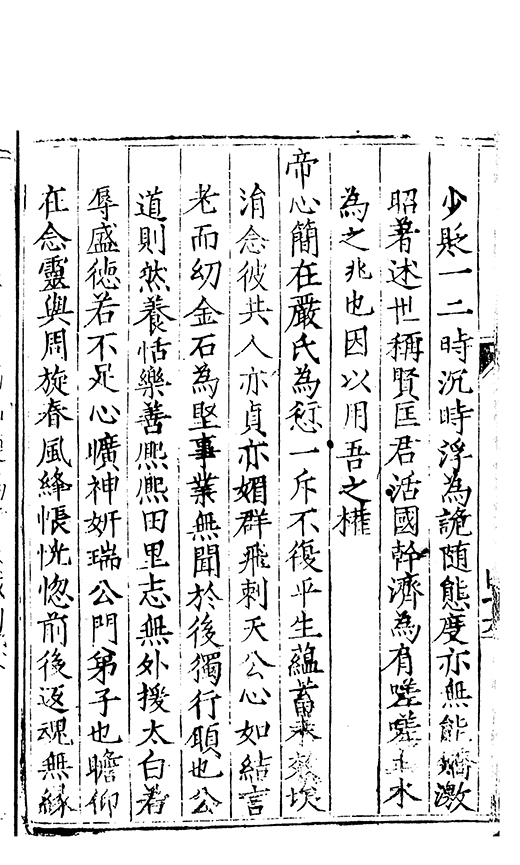 少貶一二時沉時浮為詭随態度亦無能矯激
昭著述世稱賢匡君活國幹濟為有嗟嗟水
為之兆也因以用吾之權
帝心簡在嚴氏為愆一斥不復平生蘊蓄埃
消念彼共人亦貞亦媚群飛刺天公心如結言
老而幼金石為堅事業無聞於後獨行頋也公
道則然養恬樂善熈熈田里志無外援太白着
辱盛徳若不足心曠神妍瑞公門弟子也瞻仰
在念靈與周旋春風絳帳恍惚前後返魂無縁